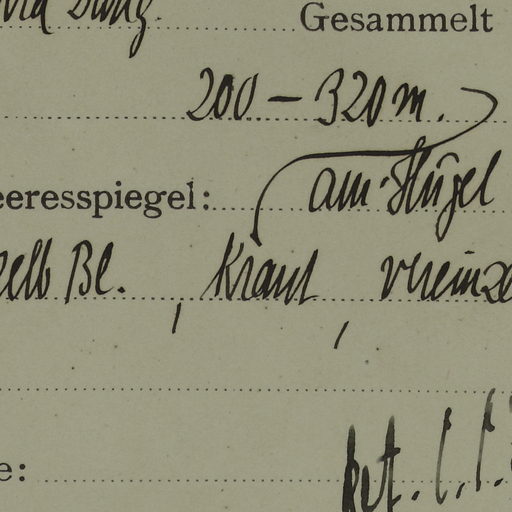 Gesammelt
200 – 320 m.
eeresspiegel: am Hügel
elb Bl., Kraut, vereinze
e: